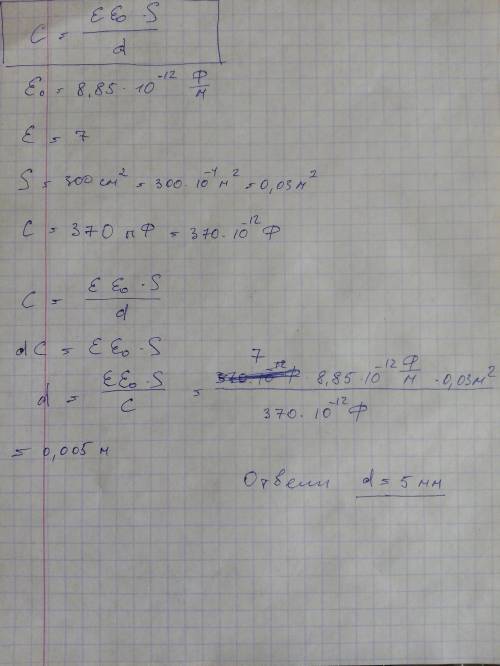 C = εε₀·S / d
ε₀ = 8,85·10⁻¹² Ф/м
ε = 7
S = 300 см² = 300·10⁻⁴ м² = 0,03 м²
C = 370 пФ = 370·10⁻¹² Ф
C = εε₀·S / d
dC = εε₀·S
d = εε₀·S / C = 7 · 8,85·10⁻¹² Ф/м · 0,03 м² / 370·10⁻¹² Ф
= 0,005 м
d = 5 мм